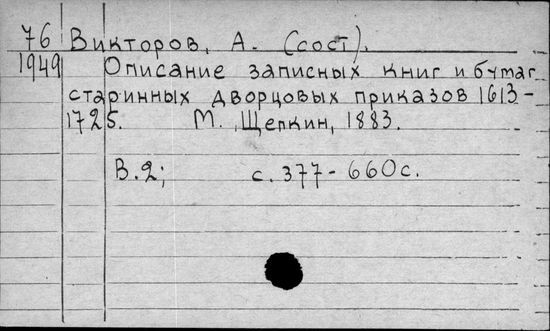 76 Викторов, А. (сост).
1949 Описание записных книг и бумаг
старинных дворцовых приказов 1613-
1725. М., Щепкин, 1883.
В.2; с. 377-660с.